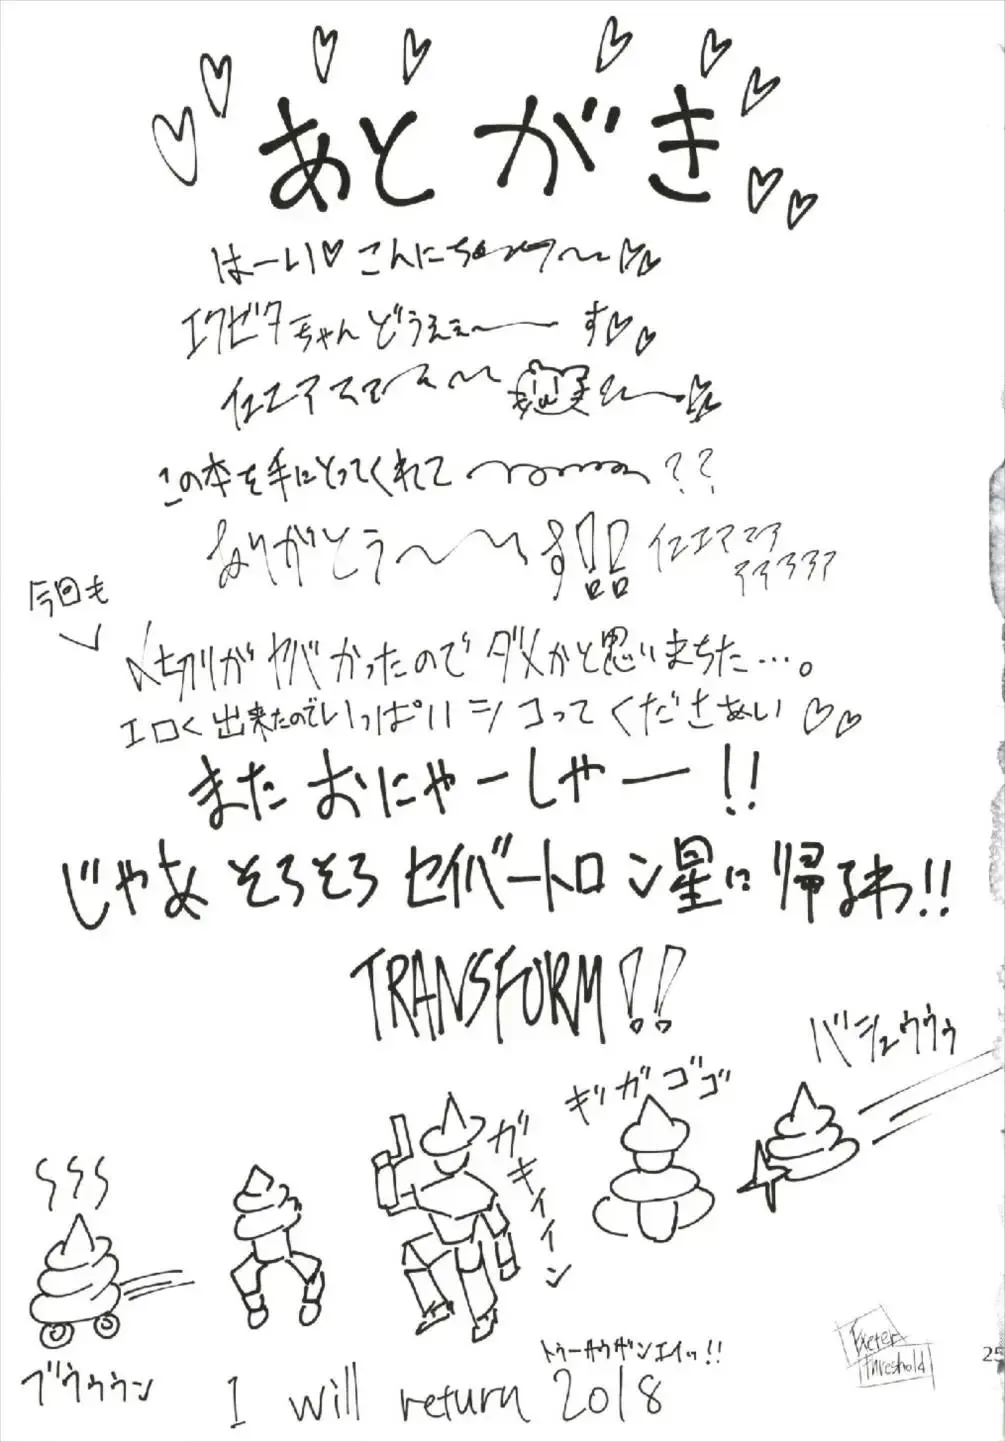 あとがき
はーい♡こんにちゎ〜〜♡♡
エクゼタちゃんどうぇぇ〜 す♡♡
イエエア
この本を手にとってくれて ??
ありがとう〜 !! イエエア
今回も
〆切りがヤバかったのでダメかと思いまちた…。
エロく出来たのでいっぱいシコってくださぁい♡♡
またおにゃーしゃー!!
じゃあそろそろセイバートロン星に帰るわ!!
TRANSFORM!!
バシュウゥゥ
ギガゴゴ
ガキィイイン
ブウゥゥン
トゥーサウザンエイッ!!
I will return 2018
Exeter
threshold
25